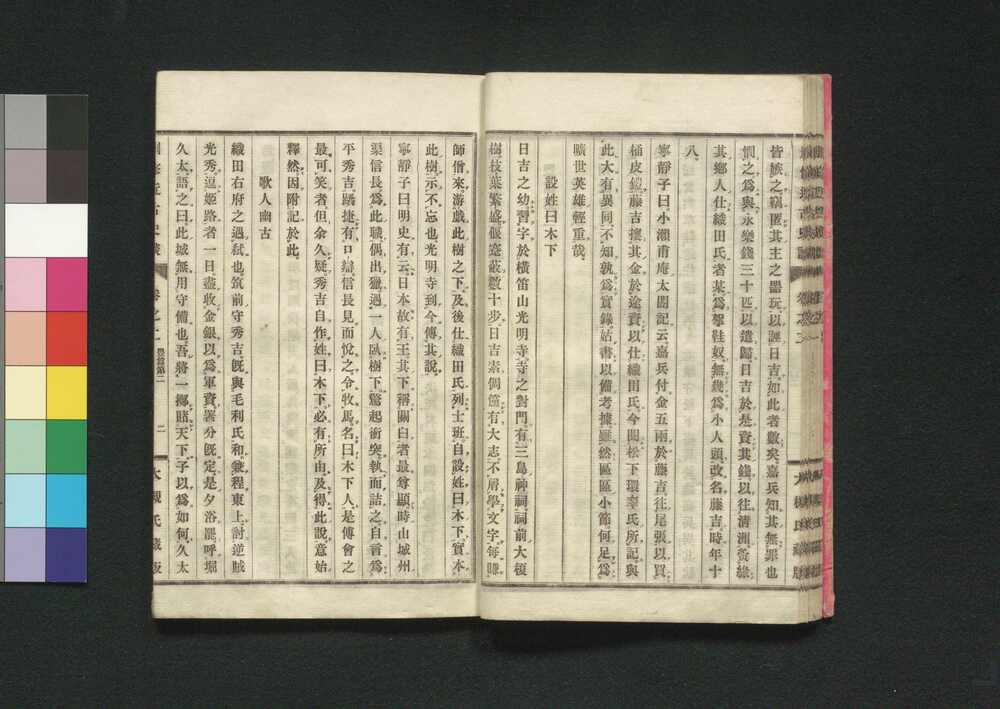 皆旅之竊匿其主之器玩以誣日吉如此者數矣嘉兵知其無罪也
憫之爲與永樂錢三十匹以遣歸日吉於是資其錢以往淸洲賁緣
其鄕人仕織田氏者某爲拏鞋奴無幾爲小人頭改名藤吉時年十
八
寧靜子曰小瀨甫庵太閤記云嘉兵付金五兩於藤吉往尾張以買
桶皮鎧藤吉攘其金於途資以仕織田氏今閱松下環家氏所記與
此大有異同不知孰爲實錄姑書以備考據雖然區區小節何足爲
曠世英雄輕重哉
設姓曰木下
日吉之幼習字於橫笛山光明寺寺之對門有三島神祠祠前大榎
樹枝葉繁盛偃蹇蔽數十步日吉素倜儻有大志不屑學文字每
師僧來游戲此樹之下及後仕織田氏列士班自設姓曰木下實本
此樹示不忘也光明寺到今傳其說
寧靜子曰明史有云日本故有王其下稱關白者最尊顯時山城州
渠信長爲此職偶出獵遇一人臥樹下驚起衝突執而詰之自言爲
平秀吉蹻捷有口辯信長見而悅之令牧馬名曰木下人是傅會之
最可笑者但余久疑秀吉自作姓曰木下必有所由及得此說意始
釋然因附記於此
歌人幽古
織田右府之遇弑也筑前守秀吉旣與毛利氏和兼程東上討逆賊
光秀逗姬路者一日盡收金銀以爲軍資署分旣定是夕浴罷呼堀
久太語之曰此城無用守備也吾將一擲賭天下子以爲如何久太
近古史談 卷之二 豐篇第二 二 大槻氏藏版